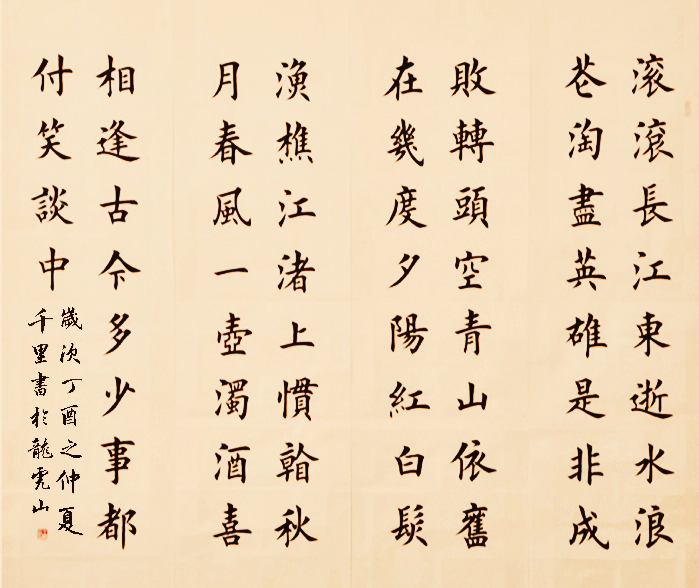 滚滚長江東逝水浪
花淘盡英雄是非成
敗轉頭空青山依舊
在幾度夕陽紅白髮
漁樵江渚上慣看秋
月春風一壺濁酒喜
相逢古今多少事都
付笑談中
歲次丁酉之仲夏
千里書於龍虎山